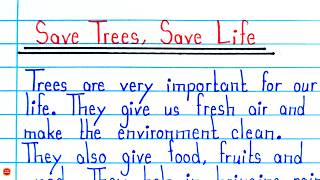 Save Trees, Save Life
Trees are very important for our
life. They give us fresh air and
make the environment clean.
They also give food, fruits and
They help in bringing rain